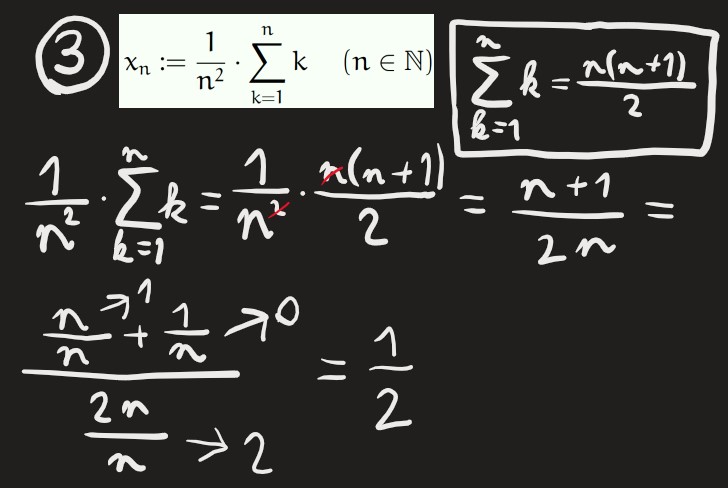 ③ xₙ := 1/n² · ∑_{k=1}^{n} k (n ∈ ℕ)
∑_{k=1}^{n} k = n(n+1)/2
1/n² · ∑_{k=1}^{n} k = 1/n² · n(n+1)/2 = (n+1)/(2n) =
(n/n → 1 + 1/n → 0)/(2n/n → 2) = 1/2